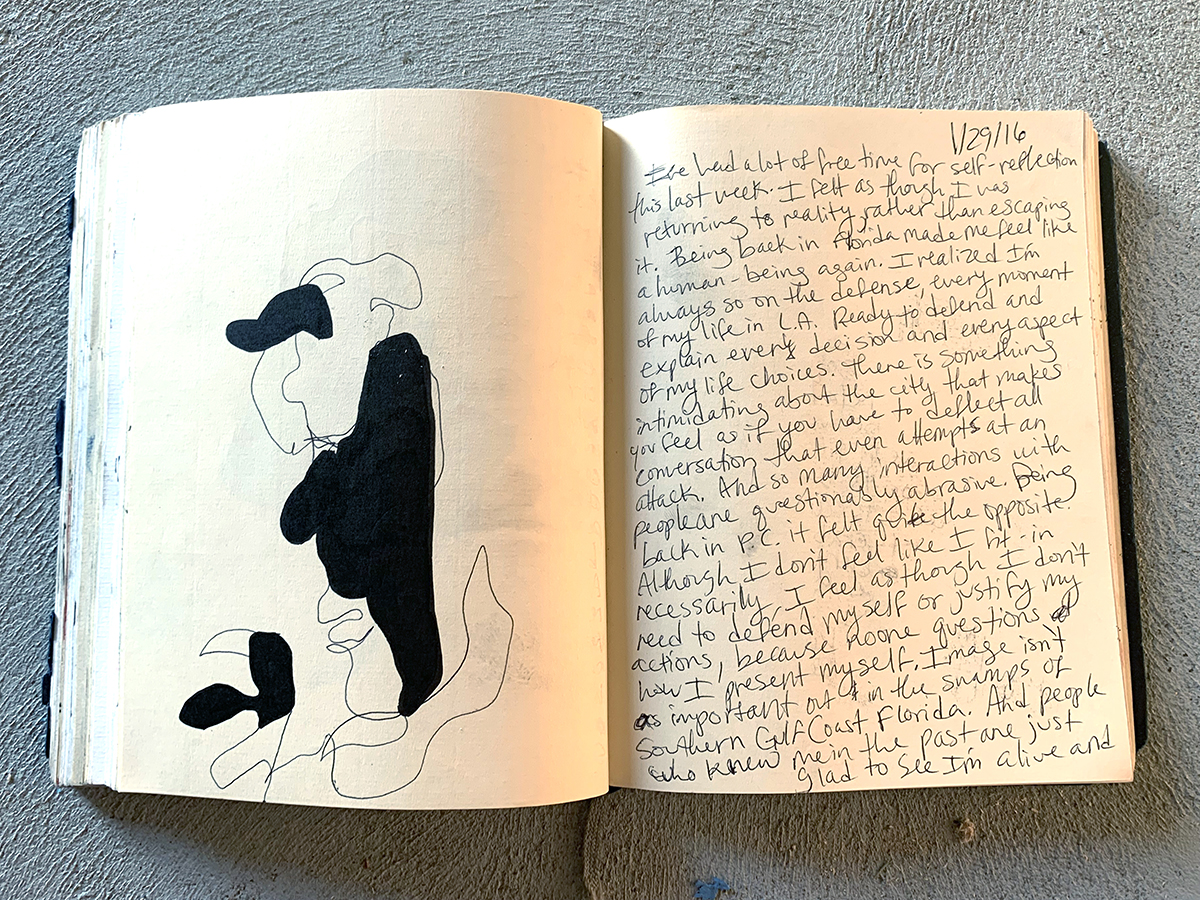 1/29/16
I've had a lot of free time for self-reflection
this last week. I felt as though I was
returning to reality rather than escaping
it. Being back in Florida made me feel like
a human-being again. I realized I'm
always so on the defense, every moment
of my life in L.A. Ready to defend and
explain every decision and every aspect
of my life choices. There is something
intimidating about the city that makes
you feel as if you have to deflect all
conversation that even attempts at an
attack. And so many interactions with
people are questionably abrasive. Being
back in P.C. it felt quite the opposite.
Although I don't feel like I fit-in
necessarily, I feel as though I don't
need to defend myself or justify my
actions, because noone questions
how I present myself. Image isn't
as important out in the swamps of
Southern Gulf Coast Florida. And people
who knew me in the past are just
glad to see I'm alive and